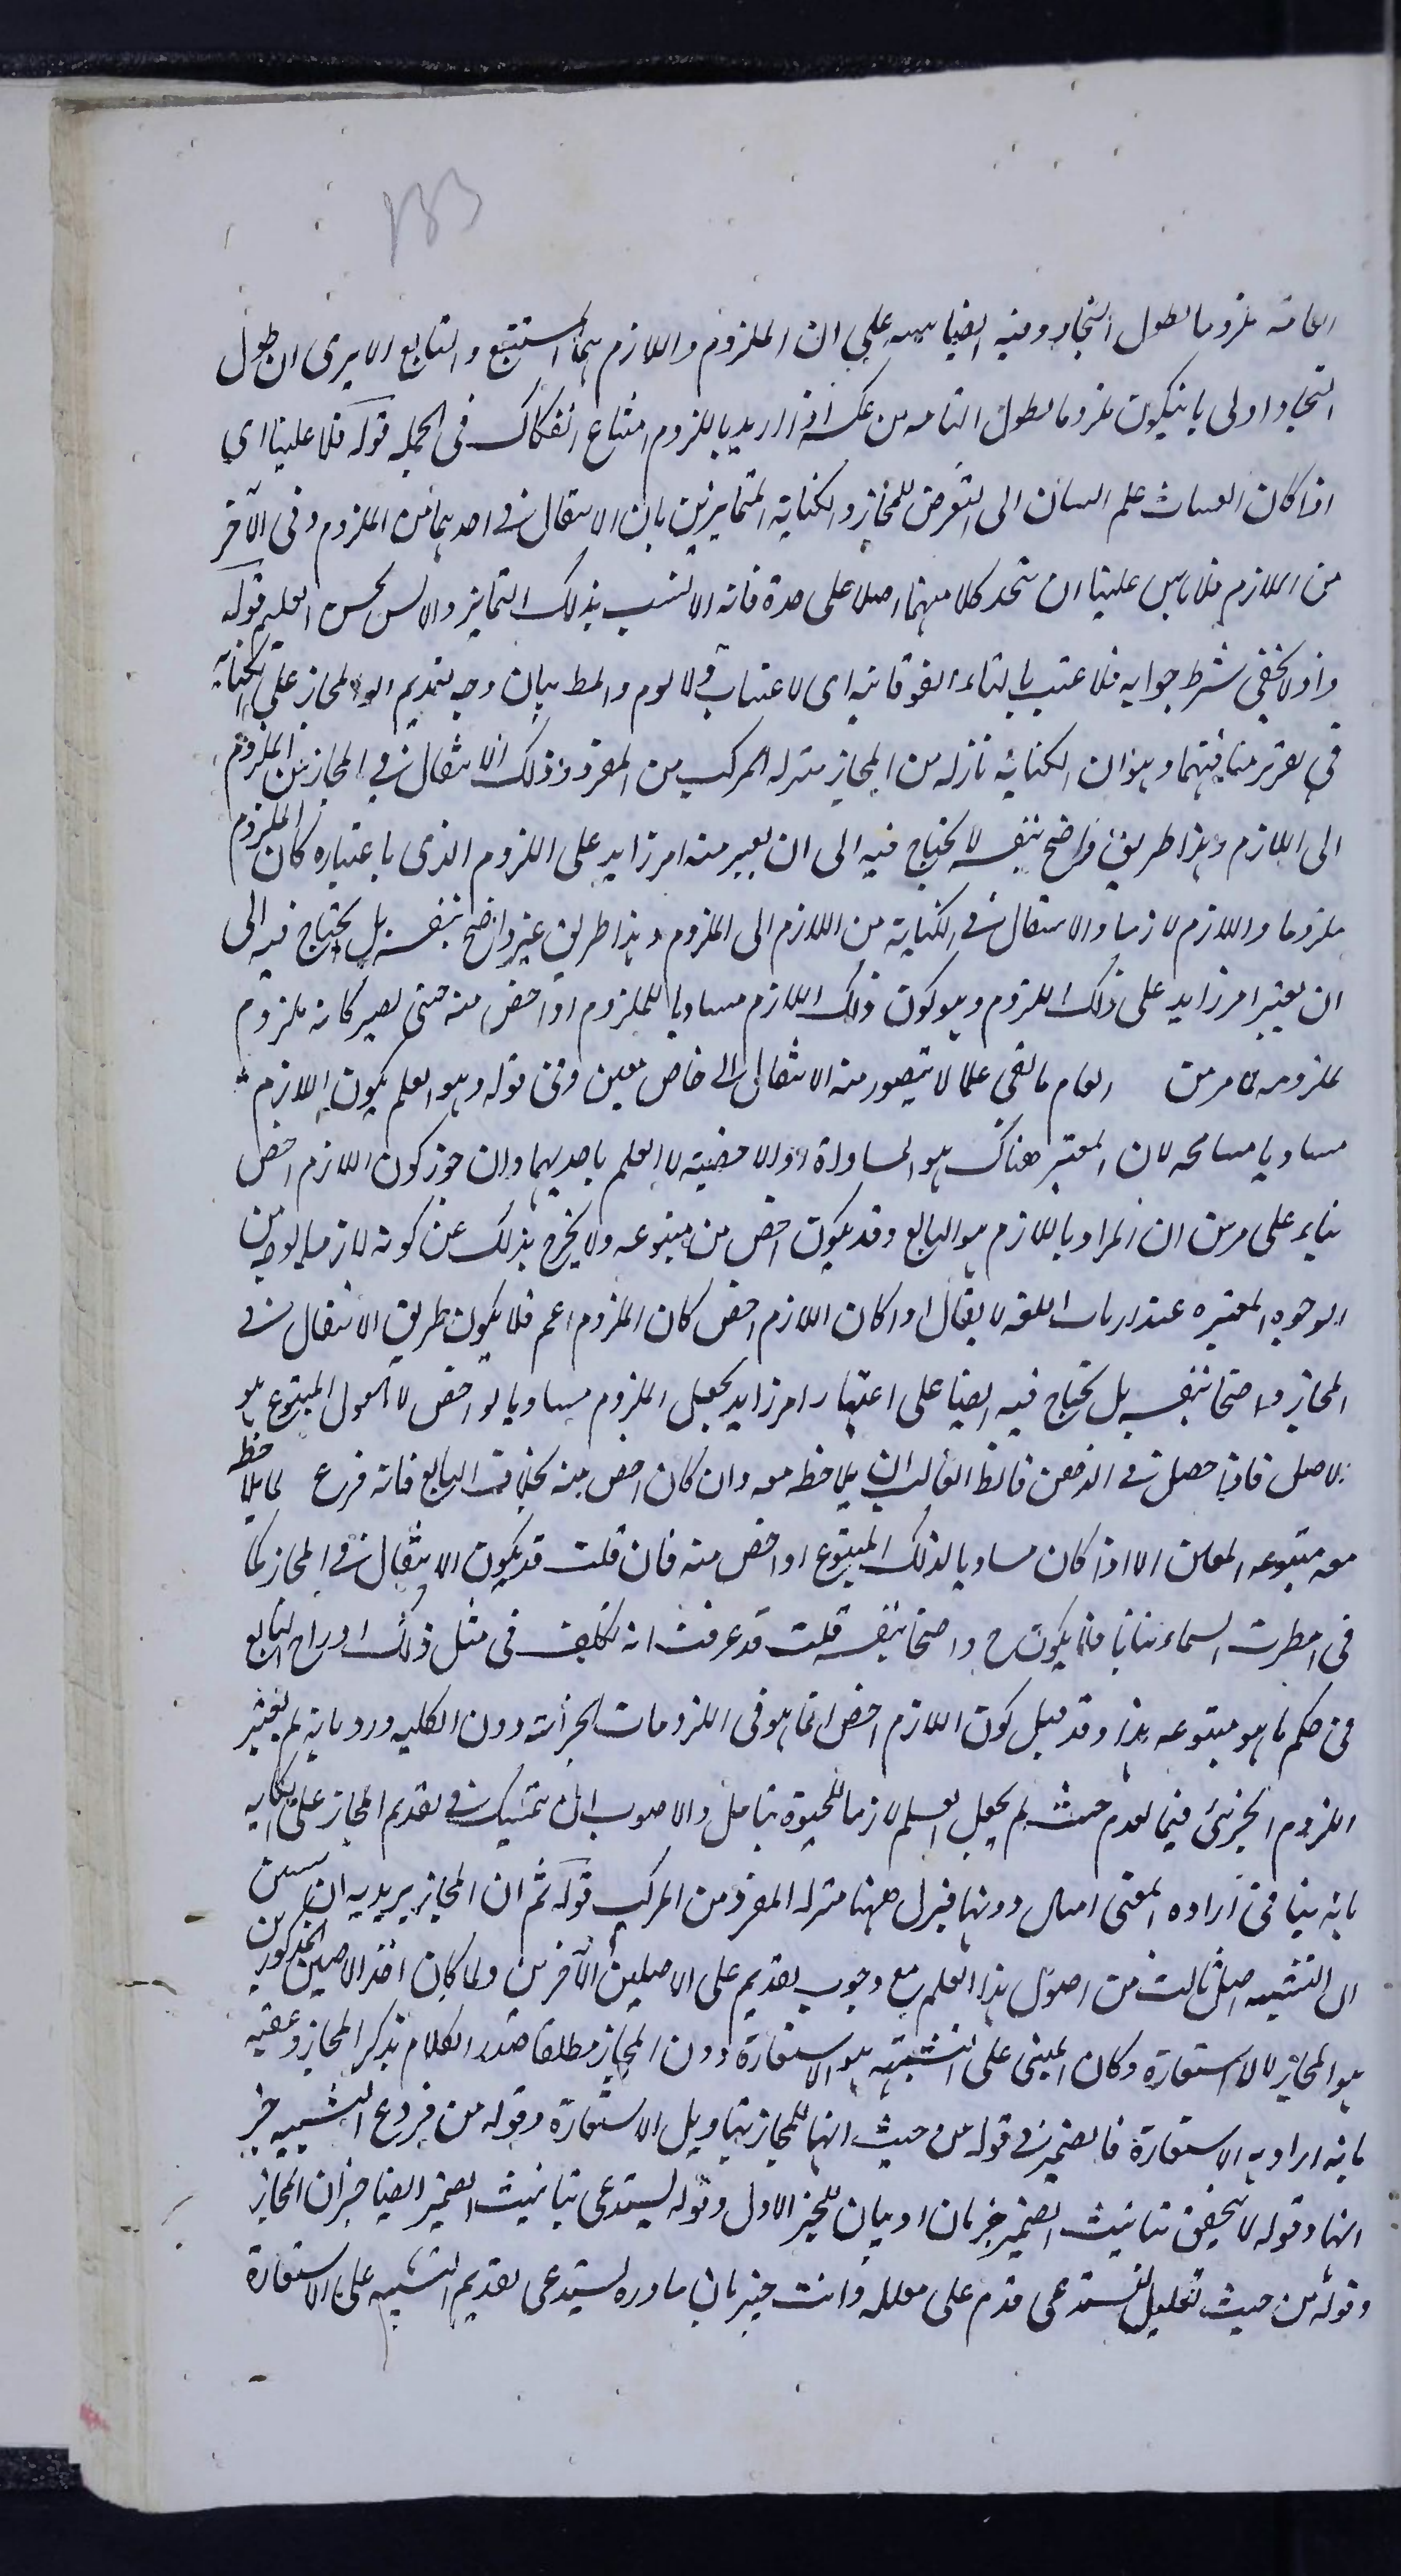 133
القامة ملزوما لطول النجاد وفيه ايضا تنبيه على ان الملزوم واللازم هما المستتبع والتابع الا يرى ان طول
النجاد اولى بان يكون ملزوما لطول القامة من عكسه اذا اريد باللزوم امتناع انفكاك فى الجملة قوله فلا علينا اى
اذا كان انصباب علم البيان الى التعرض للمجاز والكناية المتمايزين بان الانتقال فى احدهما من الملزوم وفى الآخر
من اللازم فلا باس علينا ان نتخذ كلا منهما اصلا على حدة فانه الانسب بذلك التمايز والا ليس يحسن قوله
واذ لا يخفى شرط جوابه فلا عتب بالتاء الفوقانية اى لا عتاب ولا لوم والمط بيان وجه تقديم المجاز على الكناية
فى تقرير منافيتهما وهو ان الكناية نازلة من المجاز منزلة المركب من المفرد وذلك لان الانتقال فى المجاز من الملزوم
الى اللازم وهذا طريق واضح بنفسه لا يحتاج فيه الى ان يعتبر معه امر زايد على اللزوم الذى باعتباره كان الملزوم
ملزوما واللازم لازما والانتقال فى الكناية من اللازم الى الملزوم وهذا طريق غير واضح بنفسه بل يحتاج فيه الى
ان يعتبر امر زايد على ذلك اللزوم وهو كون ذلك اللازم مساويا للملزوم او اخص منه حتى يصير كانه ملزوم
لملزومه لما مر من العام ما بقى عاما لا يتصور منه الانتقال الى خاص معين وفى قوله وهو العلم بكون اللازم
مساويا مسامحة لان المعتبر هناك هو المساواة او الاخصية لا العلم باحديهما وان جوز كون اللازم اخص
بناء على مر من ان المراد باللازم هو التابع وقد يكون اخص من متبوعه ولا يخرج بذلك عن كونه لازما بوجه من
الوجوه المعتبره عند ارباب اللغة لا يقال اذا كان اللازم اخص كان الملزوم اعم فلا يكون طريق الانتقال فى
المجاز واضحا بنفسه بل يحتاج فيه ايضا على اعتبار امر زايد يجعل الملزوم مساويا او اخص لانا نقول المتبوع هو
الاصل فاذا حصل فى الذهن فالظ الغالب ان يلاحظ معه وان كان اخص منه بخلاف التابع فانه فرع لا يلاحظ
معه متبوعه المعين الا اذا كان مساويا لذلك المتبوع او اخص منه فان قلت قد يكون الانتقال فى المجاز كما
فى امطرت السماء نباتا فلا يكون ح واضحا بنفسه قلت قد عرفت انه تكلف فى مثل ذلك ادراج التابع
فى حكم ما هو متبوعه هذا وقد قيل كون اللازم اخص انما هو فى اللزومات الجزئية دون الكليه ورد بانه لم يعتبر
اللزوم الجزئى فيما تقدم حيث لم يجعل العلم لازما للحيوة بتامل والاصوب ان يتمسك فى تقديم المجاز على الكنايه
بانه ينافى ارادة المعنى دونها فنزل ههنا منزلة المفرد من المركب قوله ثم ان المجاز يريد به ان
ان التشبيه اصل ثالث من اصول هذا العلم مع وجوب تقديم على الاصلين الآخرين ولما كان احد الاصلين المذكورين
هو المجاز لا الاستعارة وكان المبنى على التشبيه هو الاستعارة دون المجاز مطلقا صدر الكلام بذكر المجاز وعقبه
بانه اراد به الاستعارة فالضمير فى قوله من حيث انها للمجاز بتاويل الاستعارة وقوله من فروع التشبيه خبر
انها وقوله لا تتحقق بتانيث الضمير خبر ثان او بيان للخبر الاول وقوله تستدعى بتانيث الضمير ايضا خبر ان المجاز
وقوله من حيث تعليل لتستدعى قدم على معلله وانت خبير بان ما ذره يستدعى تقديم التشبيه على الاستعارة